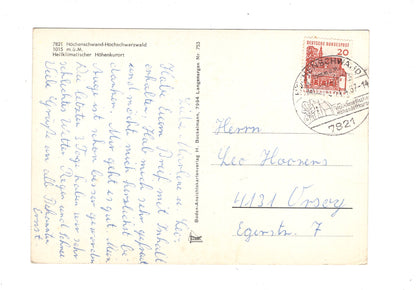 7821 Höchenschwand-Hochschwarzwald
1015 m ü. M.
Heilklimatischer Höhenkurort
Liebe Marlene u. Leo
Habe Euren Brief mit Inhalt
erhalten, Hab mich sehr gefreut
und möchte mich herzlichst be-
danken. Mir geht es gut. Mein
Auge ist schon besser geworden
Die letzten 3 Tage hatten wir sehr
schlechtes Wetter, Regen und Schnee
Viele Grüße an alle Bekannten
Ernst.
DEUTSCHE BUNDESPOST
20
7821
Herrn
Leo Hoonens
4131 Orsoy
Egerstr. 7